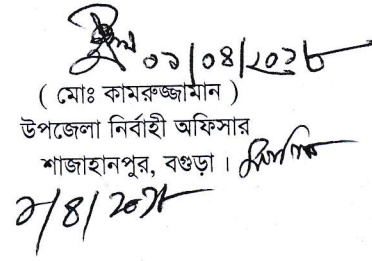 ০১/০৪/২০১৮
( মোঃ কামরুজ্জামান )
উপজেলা নির্বাহী অফিসার
শাজাহানপুর, বগুড়া ।